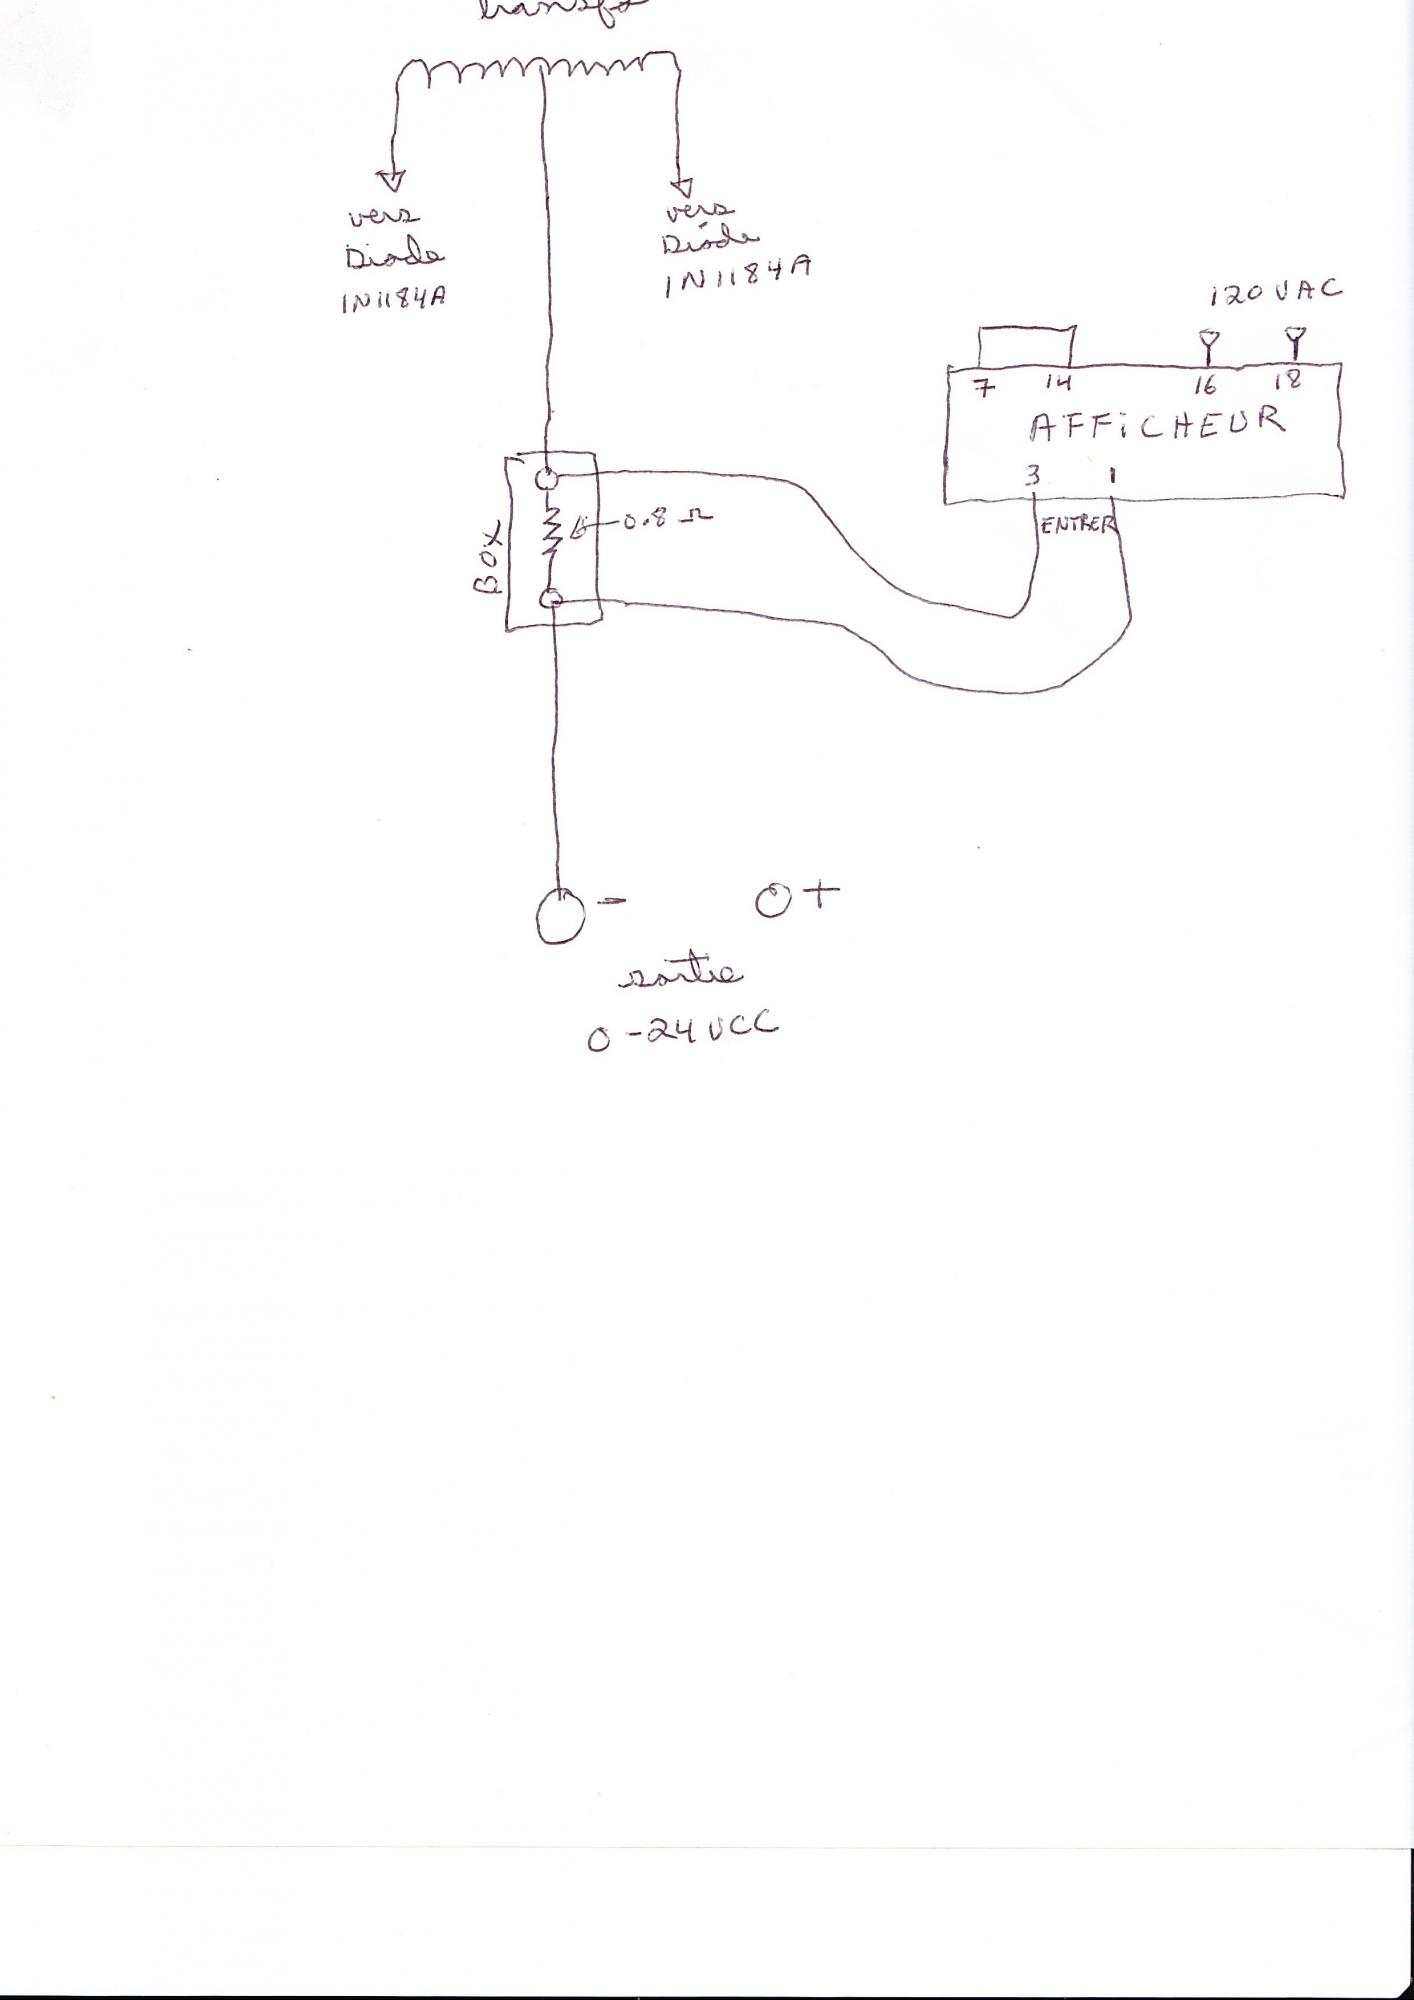 transfo
vers
Diode
1N1184A
vers
Diode
1N1184A
120 VAC
7 14 16 18
AFFiCHEUR
3 1
ENTRER
BOX
0.8 Ω
- +
sortie
0-24 VCC